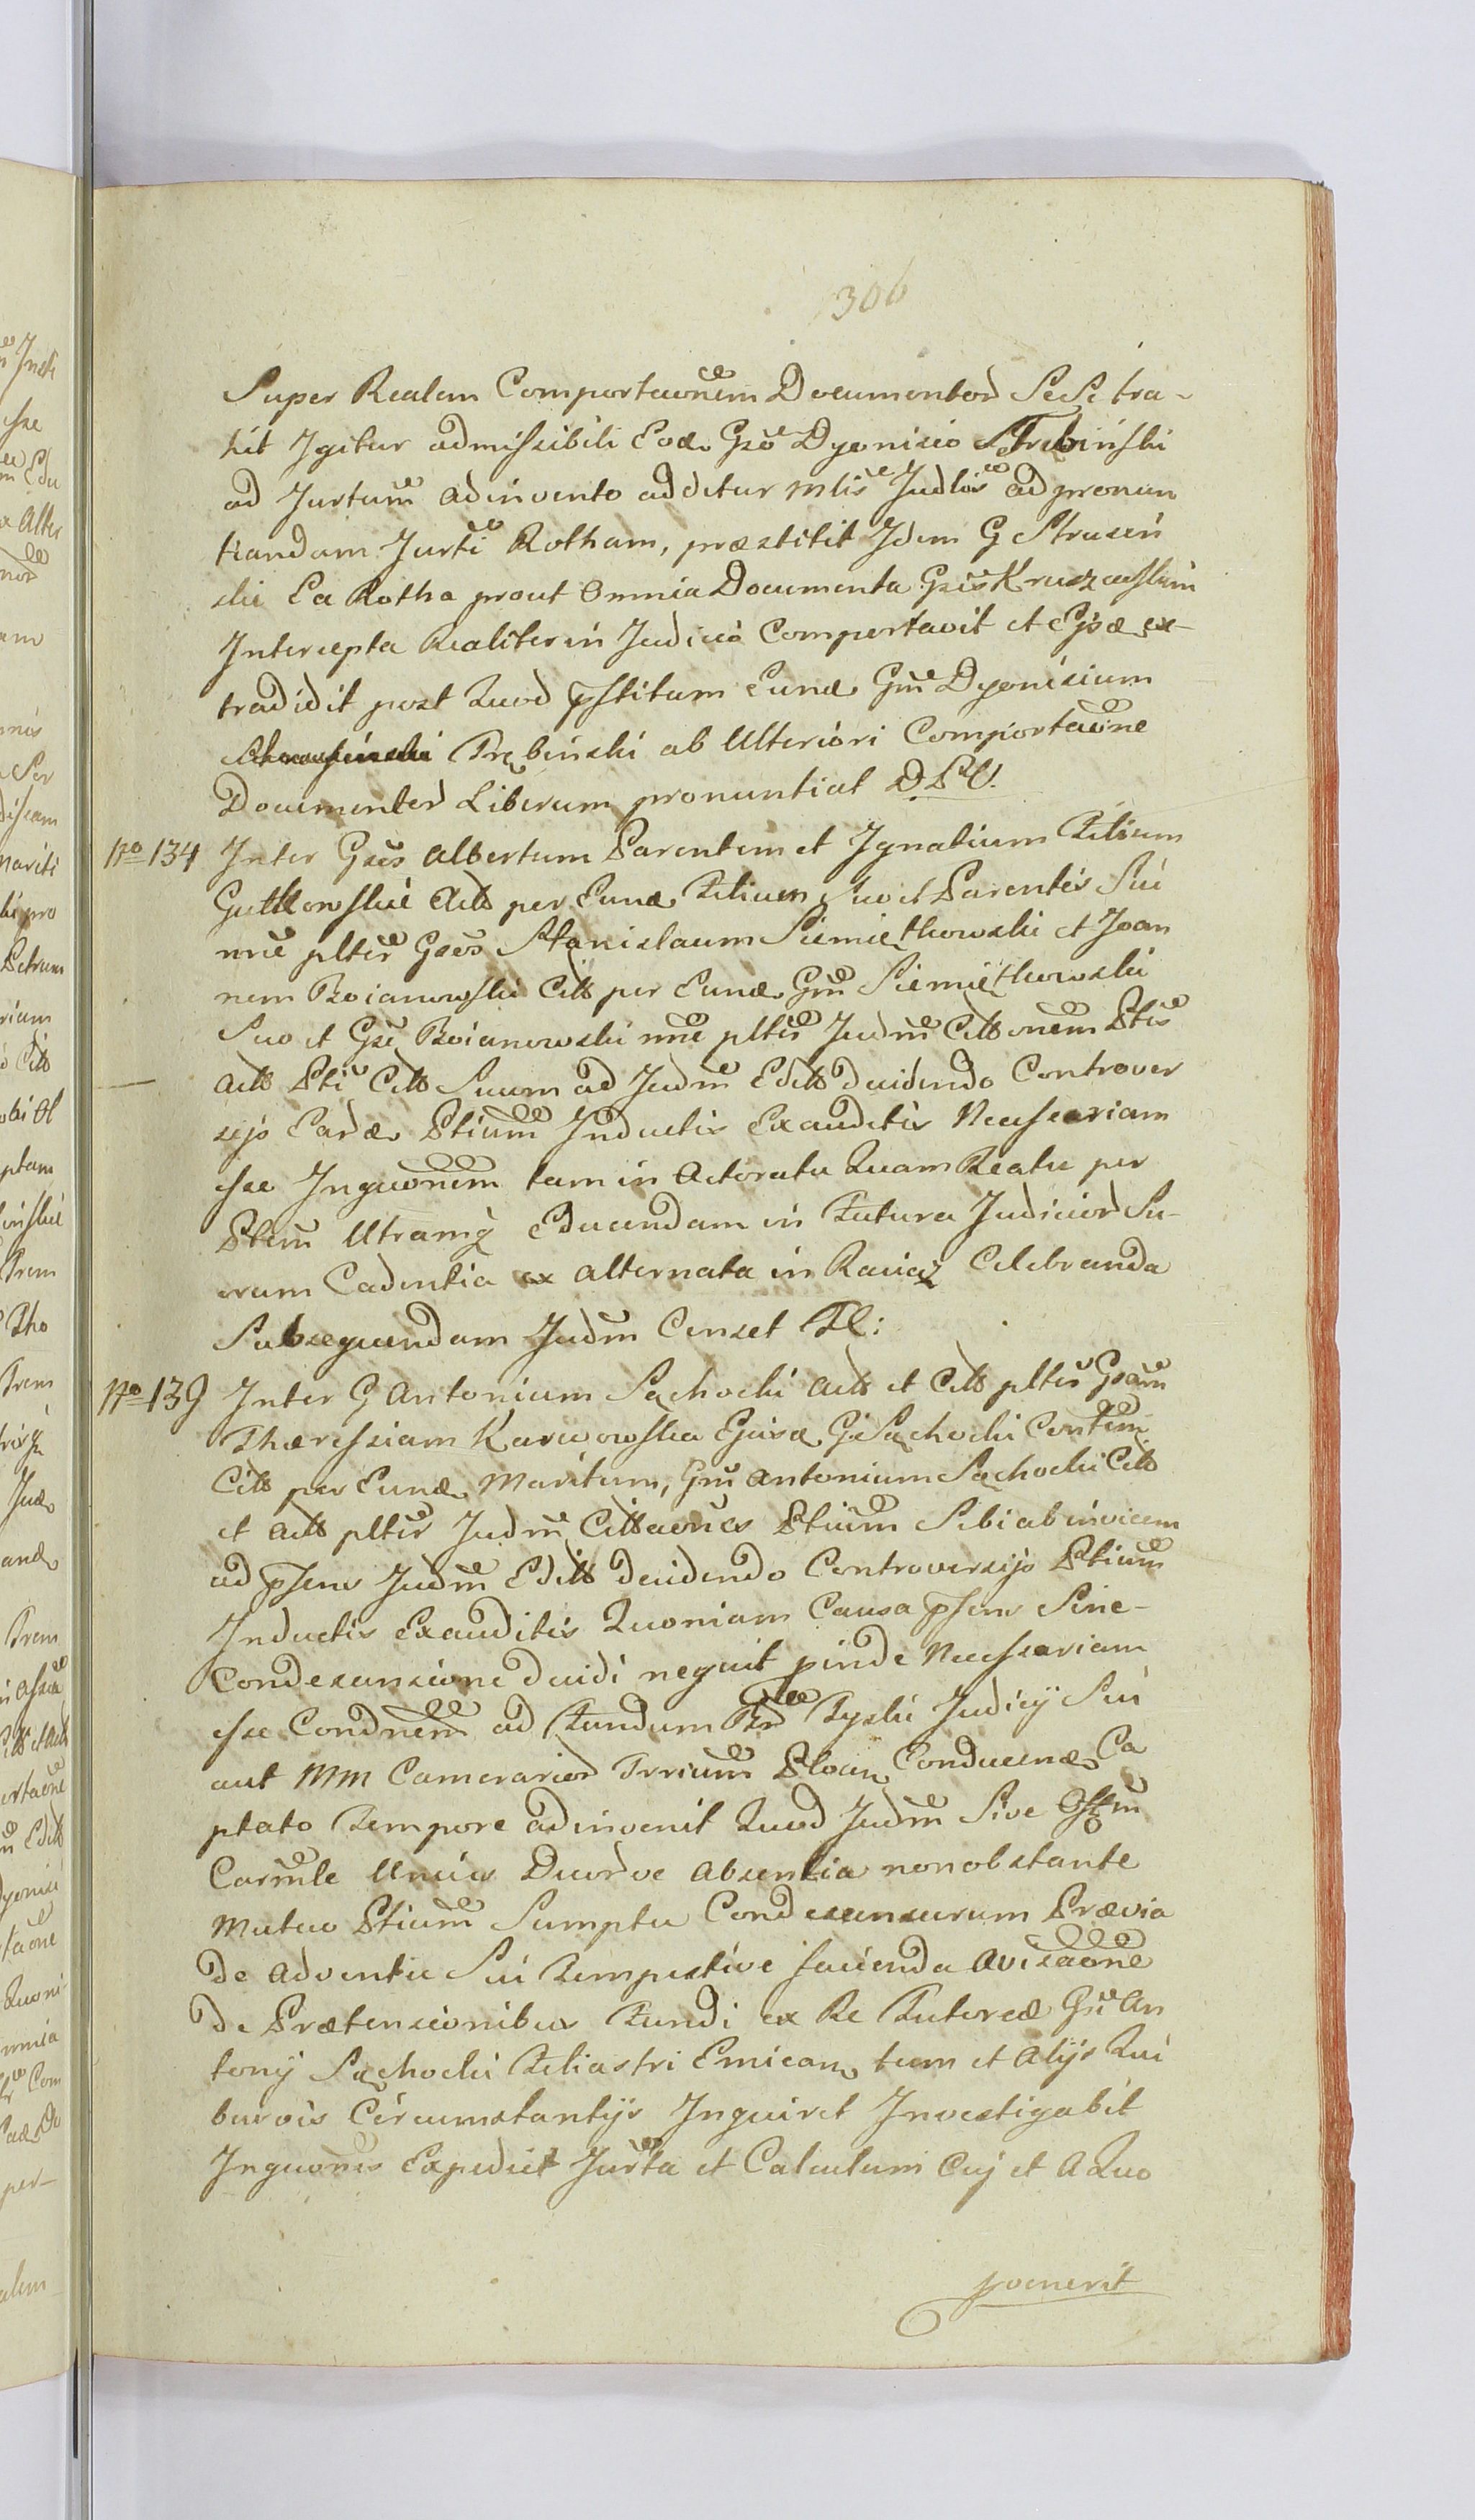 306
Super Realem Comportaõnem Documentor̃ Se Se tra-
hit Igitur admissibili Eod. Gso Dyonisio Trębiński
ad Jurtum adinvento additur Mlis Judlis ad pronun
tiandam Jurti Rotham, præstitit Idem G Strusiń
ski Ea Rotha prout Omnia Documenta Gsis Kruszewskim
Intercepta Realiter in Judicio Comportavit et Ejsd. ex-
tradidit post Quod pstitum Eund. Gm̃ Dyonisium
Trębinski ab Ulteriori Comportaõne
Documentor̃ Liberum pronuntiat D.P.V.
No 134 Inter Gses Albertum Parentem et Ignatium Filium
Gutkowskie Acts per Eund. Filium Suo et Parentis Sui
nne plter Gses Stanislaum Siemiętkowski et Joan
nem Boianowski Citts per Eund. Gm̃ Siemiętkowski
Suo et Gsi Boianowski nne plter Judm̃ Cittonem Ptis
Acts Pti Citts Suum ad Judm̃ Editts decidendo Controver
sijs Eard. Ptium̃ Inductis Exauditis Necessariam
esse Inquõnem tam in Actoratu Quam Reatu per
Ptem̃ Utramq̃ Educendam in Futura Judicior̃ Su-
orum Cadentia ex alternata in Raciąz Celebranda
Subsequendam Judm̃ Censet Fl:
No 139 Inter G Antonium Sąchocki Acts et Citts plter Gsam
Theressiam Karwowska Ejusd. G Sąchocki Contem̃
Citts per Eund. Maritum, Gm̃ Antonium Sąchocki Citts
et Acts plter Judm̃ Cittaones Ptium̃ Sibi ab invicem
ad psens Judm̃ Editts decidendo Controversijs Ptium̃
Inductis Exauditis Quoniam Causa psens Sine-
Condescensione decidi nequit pinde Necessariam
esse Condnem̃ ad Fundum Br̃ Tyski Judicÿ Sui
aut MM Camerarior̃ Trrium̃ Plocen. Conducend. Ca
ptato Tempore adinvenit Quod Judm̃ Sive Offm̃
Carm̃le Unius Duor̃ve Absentia non obstante
Mutuo Ptium̃ Sumptu Condescensurum Prævia
de Adventu Sui Tempestive facienda Avisaõne
de Prætensionibus Fundi ex Re Tutored. Gsi An
tonÿ Sąchocki Filiastri Emican. tum et Alijs Qui
busvis Circumstantÿs Inquiret Investigabit
Inquones Expediet Jurta et Calculum Cuj et A Quo
venerit